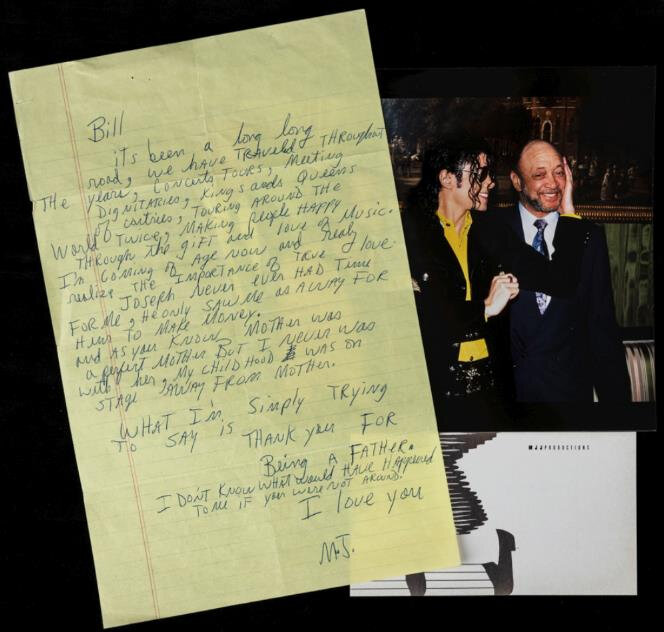 Bill
its been a long long
road, we HAVE TRAVELED THROUGHOUT
THE years, CONCERTS TOURS, Meeting
DIGNITARIES, Kings ands Queens
of contries, TOURING AROUND THE
World TWICE, MAKING PEOPLE HAPPY
THROUGH THE GIFT and love of Music.
I'm COMING of Age now and realy
realize THE IMPORTANCE of TRUE love.
JOSEPH NEVER EVER HAD TIME
FOR Me, He ONly SAW Me as A WAY FOR
HIM TO MAKE MONEY.
and AS you KNOW MOTHER WAS
a perfect MOTHER BUT I never was
with her, My CHILDHOOD WAS ON
STAGE AWAY FROM MOTHER.
WHAT I'm Simply TRYING
TO SAY is THANK you FOR
Being A FATHER.
I DON'T KNOW WHAT would HAVE HAppened
TO Me IF you WERE NOT AROUND.
I love you
M.J.
MJJPRODUCTIONS